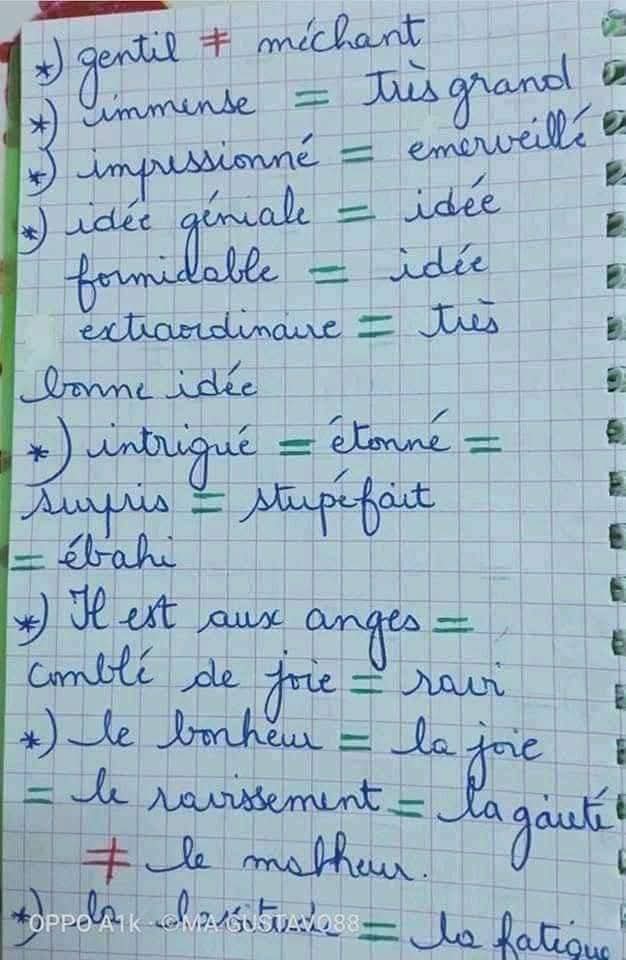 *) gentil ≠ méchant
*) immense = très grand
*) impressionné = emerveillé
*) idée géniale = idée
formidable = idée
extraordinaire = très
bonne idée
*) intrigué = étonné =
surpris = stupéfait
= ébahi
*) Il est aux anges =
comblé de joie = ravi
*) le bonheur = la joie
= le ravissement = la gaieté
≠ le malheur.
*) la = la fatigue
OPPO A1k · ©MA GUSTAVO88